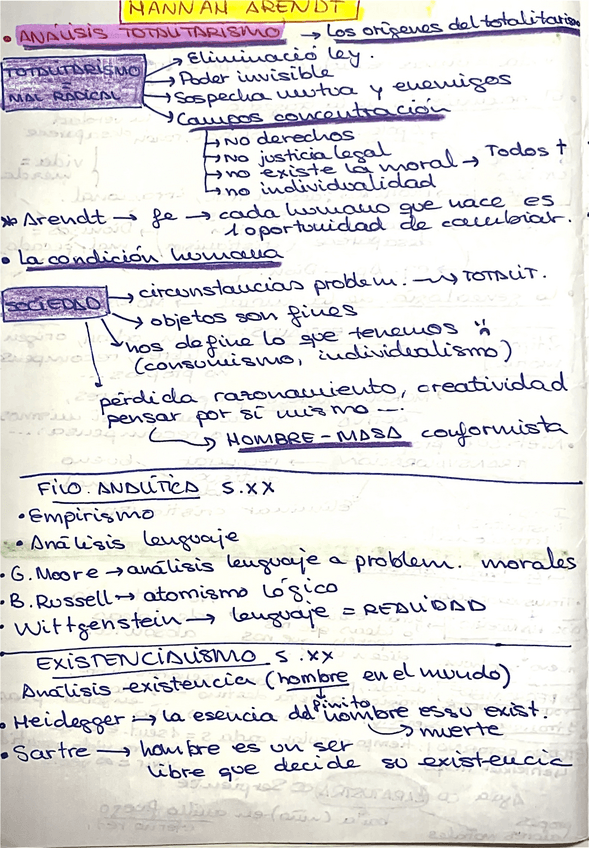 HANNAH ARENDT
• ANÁLISIS TOTALITARISMO → Los orígenes del totalitarismo
TOTALITARISMO MAL RADICAL
→ Eliminació ley.
→ Poder invisible
→ Sospecha mutua y enemigos
→ Campos concentración
→ No derechos
→ No justicia legal
→ no existe la moral → Todos †
→ no individualidad
* Arendt → fe → cada humano que nace es
1 oportunidad de cambiar.
• La condición humana
SOCIEDAD → circunstancias problem. → TOTALIT.
→ objetos son fines
→ nos define lo que tenemos
(consumismo, individualismo)
pérdida razonamiento, creatividad
pensar por sí mismo ...
→ HOMBRE-MASA conformista
FILO. ANALÍTICA S.XX
• Empirismo
• Análisis lenguaje
• G. Moore → análisis lenguaje a problem. morales
• B. Russell → atomismo lógico
• Wittgenstein → lenguaje = REALIDAD
EXISTENCIALISMO S.XX
Análisis existencia (hombre en el mundo)
finito
• Heidegger → la esencia del hombre es su exist.
→ muerte
• Sartre → hombre es un ser
libre que decide su existencia